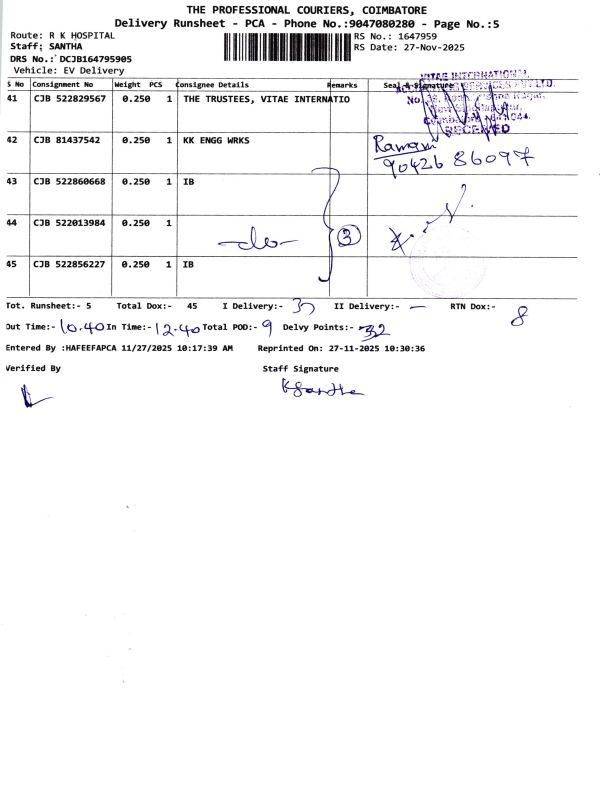 THE PROFESSIONAL COURIERS, COIMBATORE
Delivery Runsheet - PCA - Phone No.:9047080280 - Page No.:5
Route: R K HOSPITAL
RS No.: 1647959
Staff; SANTHA
RS Date: 27-Nov-2025
DRS No.: DCJB164795905
Vehicle: EV Delivery
S No Consignment No Weight PCS Consignee Details Remarks Seal & Signature
41 CJB 522829567 0.250 1 THE TRUSTEES, VITAE INTERNATIO
VITAE INTERNATIONAL
RECEIVED
42 CJB 81437542 0.250 1 KK ENGG WRKS
Ramani
90426 86097
43 CJB 522860668 0.250 1 IB
44 CJB 522013984 0.250 1
-do- 3
45 CJB 522856227 0.250 1 IB
Tot. Runsheet:- 5 Total Dox:- 45 I Delivery:- II Delivery:- — RTN Dox:- 8
Out Time:- 10.40 In Time:- 12.40 Total POD:- 9 Delvy Points:- 32
Entered By :HAFEEFAPCA 11/27/2025 10:17:39 AM Reprinted On: 27-11-2025 10:30:36
Verified By Staff Signature
KSantha